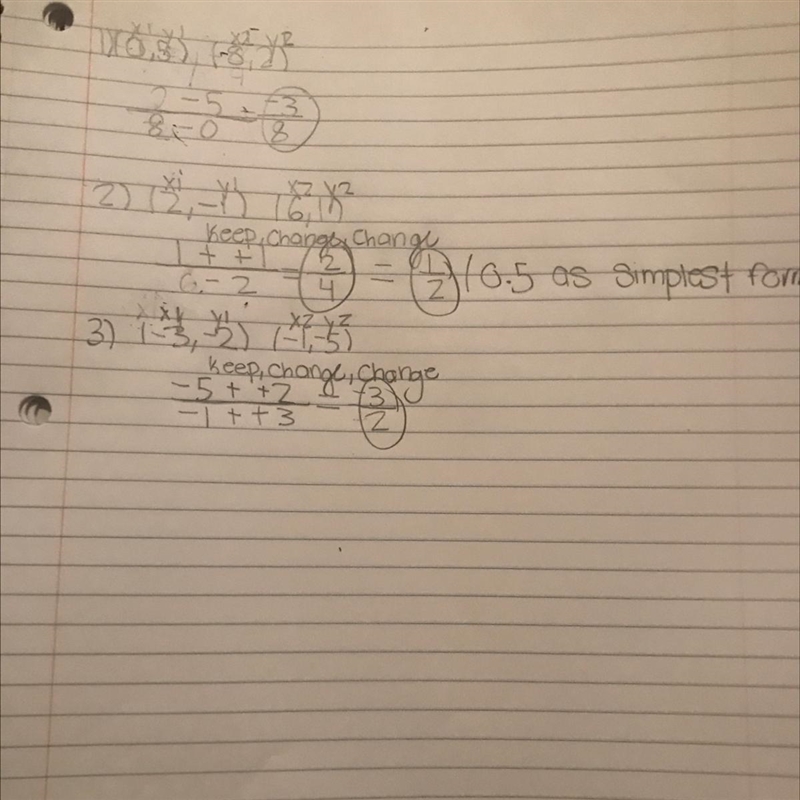 x1 y1 x2 y2
1) (0,5), (-8,2)
2-5 = -3
8-0 8
x1 y1 x2 y2
2) (2,-1) (6,1)
Keep, change, change
1 + +1 = 2 = 1 / 0.5 as simplest form
6-2 4 2
x1 y1 x2 y2
3) (-3,-2) (-1,-5)
Keep, change, change
-5 + +2 = -3
-1 + +3 2